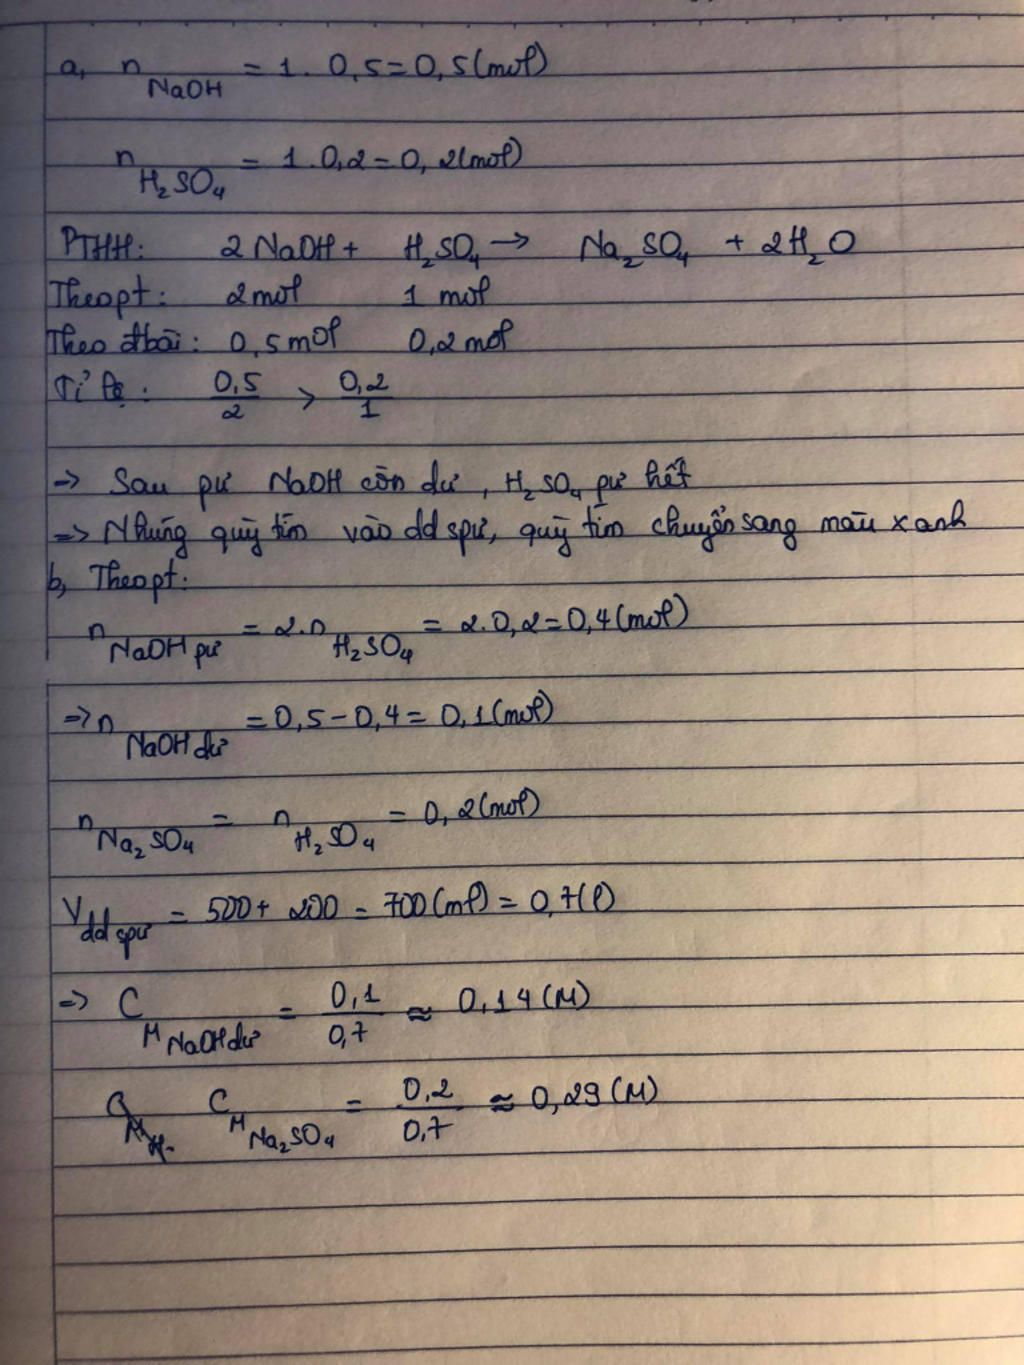 a, n NaOH = 1. 0,5 = 0,5 (mol)
n H₂SO₄ = 1. 0,2 = 0,2 (mol)
PTHH: 2 NaOH + H₂SO₄ → Na₂SO₄ + 2H₂O
Theo pt: 2 mol 1 mol
Theo đbài: 0,5 mol 0,2 mol
Tỉ lệ: 0,5/2 > 0,2/1
=> Sau pư NaOH còn dư, H₂SO₄ pư hết
=> Nhúng quỳ tím vào dd spư, quỳ tím chuyển sang màu xanh
b, Theo pt:
n NaOH pư = 2.n H₂SO₄ = 2.0,2 = 0,4 (mol)
=> n NaOH dư = 0,5 - 0,4 = 0,1 (mol)
n Na₂SO₄ = n H₂SO₄ = 0,2 (mol)
V dd spư = 500 + 200 = 700 (ml) = 0,7 (l)
=> C M NaOH dư = 0,1/0,7 ≈ 0,14 (M)
C M Na₂SO₄ = 0,2/0,7 ≈ 0,29 (M)